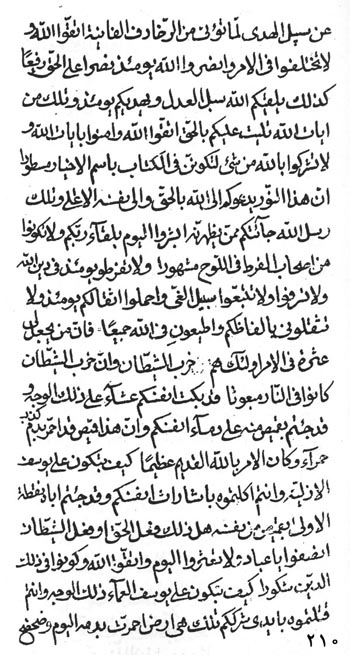 عن سبل الهدى لما تؤتى من الزخارف الفانية اتقوا الله و
لا تختلفوا فى الامر وانصروا الله يومئذ بنصرا على الحق رفيعا
كذلك يلقيكم الله سبل العدل ويهديكم يومئذ وتلك من
ايات الله تليت عليكم بالحق اتقوا الله وامنوا بايات الله و
لا تشركوا بالله من شئ لتكونن فى الكتاب باسم الاخيار مسطورا
ان هذا النور يدعوكم الى الله بالحق والى نفسه الاعلى وتلك
رسل الله جائتكم ممن يظهرنه ابشروا اليوم بلقاء ربكم ولا تكونوا
من اصحاب الفرط فى اللوح مشهورا ولا تفرطو يومئذ فى دين الله
ولا ولا تتبعوا سبيل الغى واحملوا اثقالكم يومئذ ولا
تثقلونى بالفاظكم واطيعون فى الله جميعا فان من يجعل لى
عثرة فى الامر اولئك هم حزب الشيطان وان حزب الشيطان
كانوا فى النار مبعوثا قد بكت انفسكم عشاء على ذلك الوجه و
قد جئتم بقميص منه على دماء انفسكم وان هذا قميص قد احمر بدم كذب
حمراء وكان الامر بالله القديم عظيما كيف تبكون على يوسف
الازلية وانتم اكلتموه باشارات انفسكم وقد جئتم ابا نقطة
الاولى بقميص من نفسه هل ذلك فعل الحق او فعل الشيطان
انصفوا يا عباد ولا تعثروا اليوم واتقوا الله وكونوا فى ذلك
الدين كيف تبكون على يوسف العماء ذلك الوجه وانتم
قتلتموه بايدى شرككم تلك هى ارض احمرت بدمه اليوم و
٢١٠